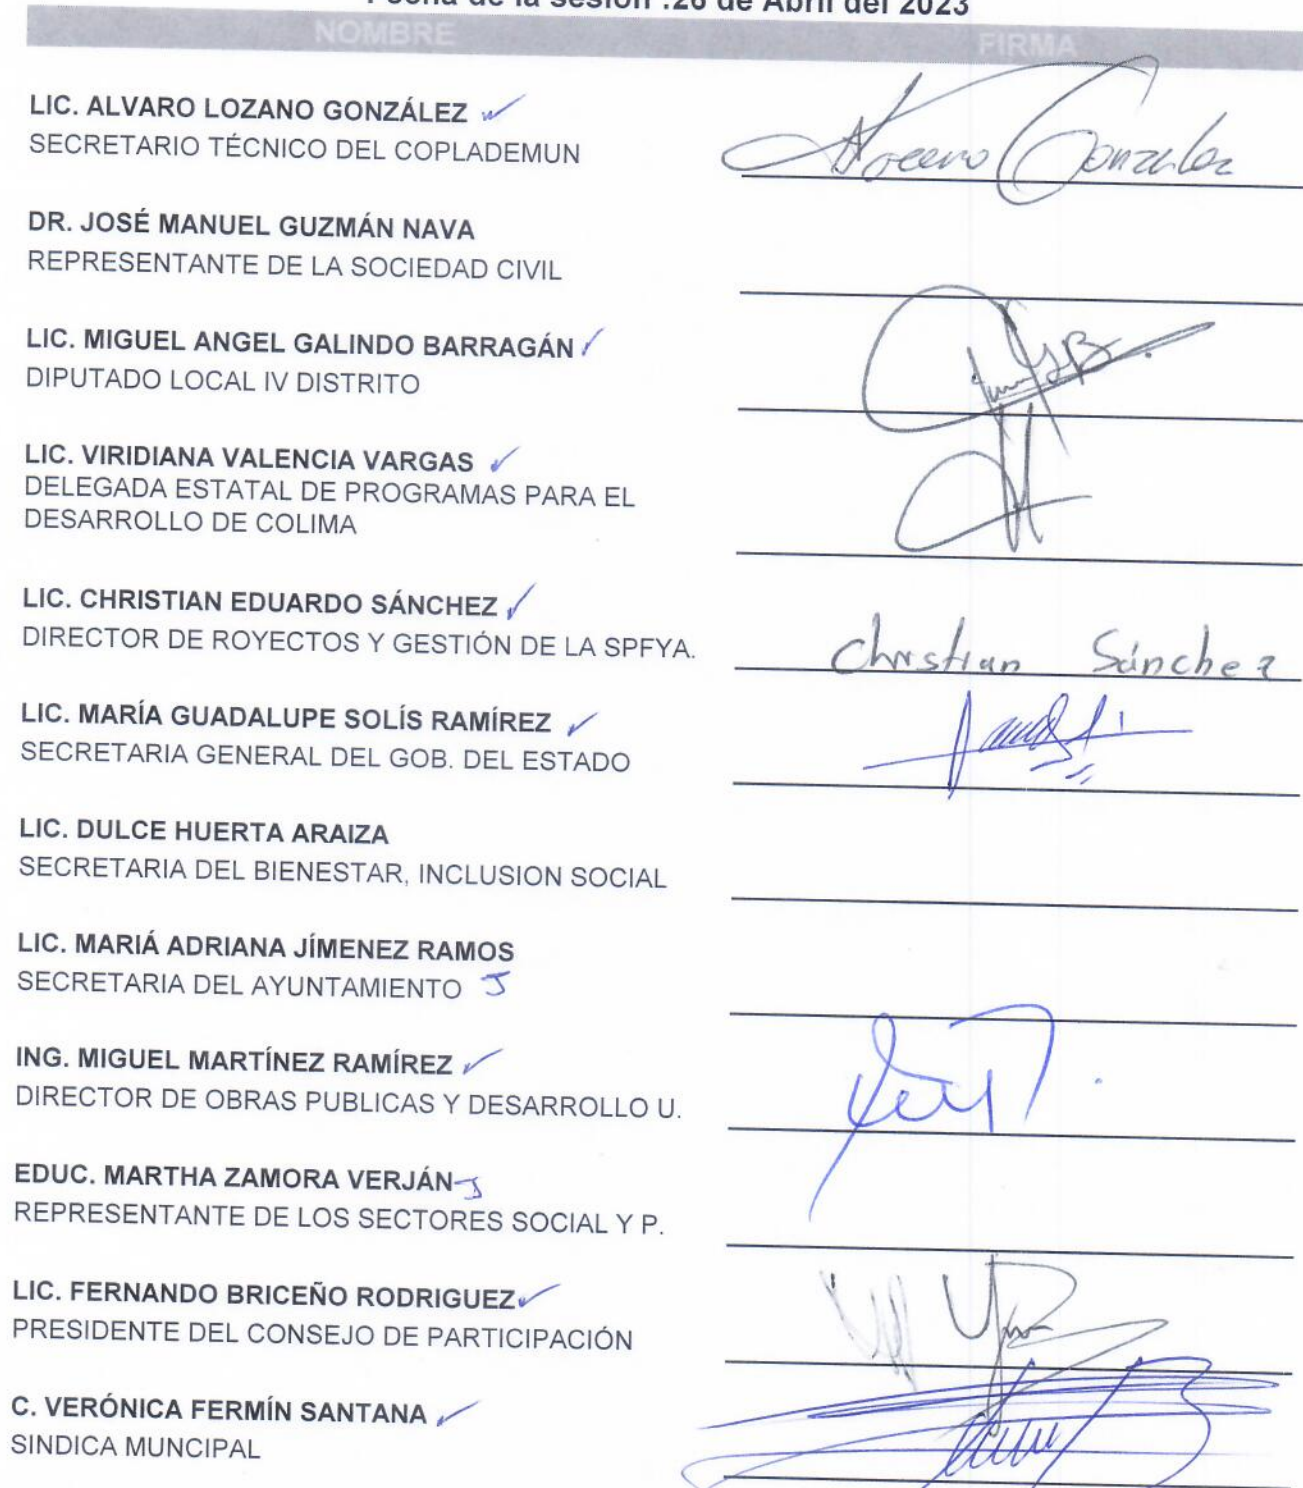 Fecha de la sesión :26 de Abril del 2023
NOMBRE FIRMA
LIC. ALVARO LOZANO GONZÁLEZ
SECRETARIO TÉCNICO DEL COPLADEMUN
DR. JOSÉ MANUEL GUZMÁN NAVA
REPRESENTANTE DE LA SOCIEDAD CIVIL
LIC. MIGUEL ANGEL GALINDO BARRAGÁN
DIPUTADO LOCAL IV DISTRITO
LIC. VIRIDIANA VALENCIA VARGAS
DELEGADA ESTATAL DE PROGRAMAS PARA EL
DESARROLLO DE COLIMA
LIC. CHRISTIAN EDUARDO SÁNCHEZ
DIRECTOR DE ROYECTOS Y GESTIÓN DE LA SPFYA.
Christian Sánchez
LIC. MARÍA GUADALUPE SOLÍS RAMÍREZ
SECRETARIA GENERAL DEL GOB. DEL ESTADO
LIC. DULCE HUERTA ARAIZA
SECRETARIA DEL BIENESTAR, INCLUSION SOCIAL
LIC. MARIÁ ADRIANA JÍMENEZ RAMOS
SECRETARIA DEL AYUNTAMIENTO
ING. MIGUEL MARTÍNEZ RAMÍREZ
DIRECTOR DE OBRAS PUBLICAS Y DESARROLLO U.
EDUC. MARTHA ZAMORA VERJÁN
REPRESENTANTE DE LOS SECTORES SOCIAL Y P.
LIC. FERNANDO BRICEÑO RODRIGUEZ
PRESIDENTE DEL CONSEJO DE PARTICIPACIÓN
C. VERÓNICA FERMÍN SANTANA
SINDICA MUNCIPAL